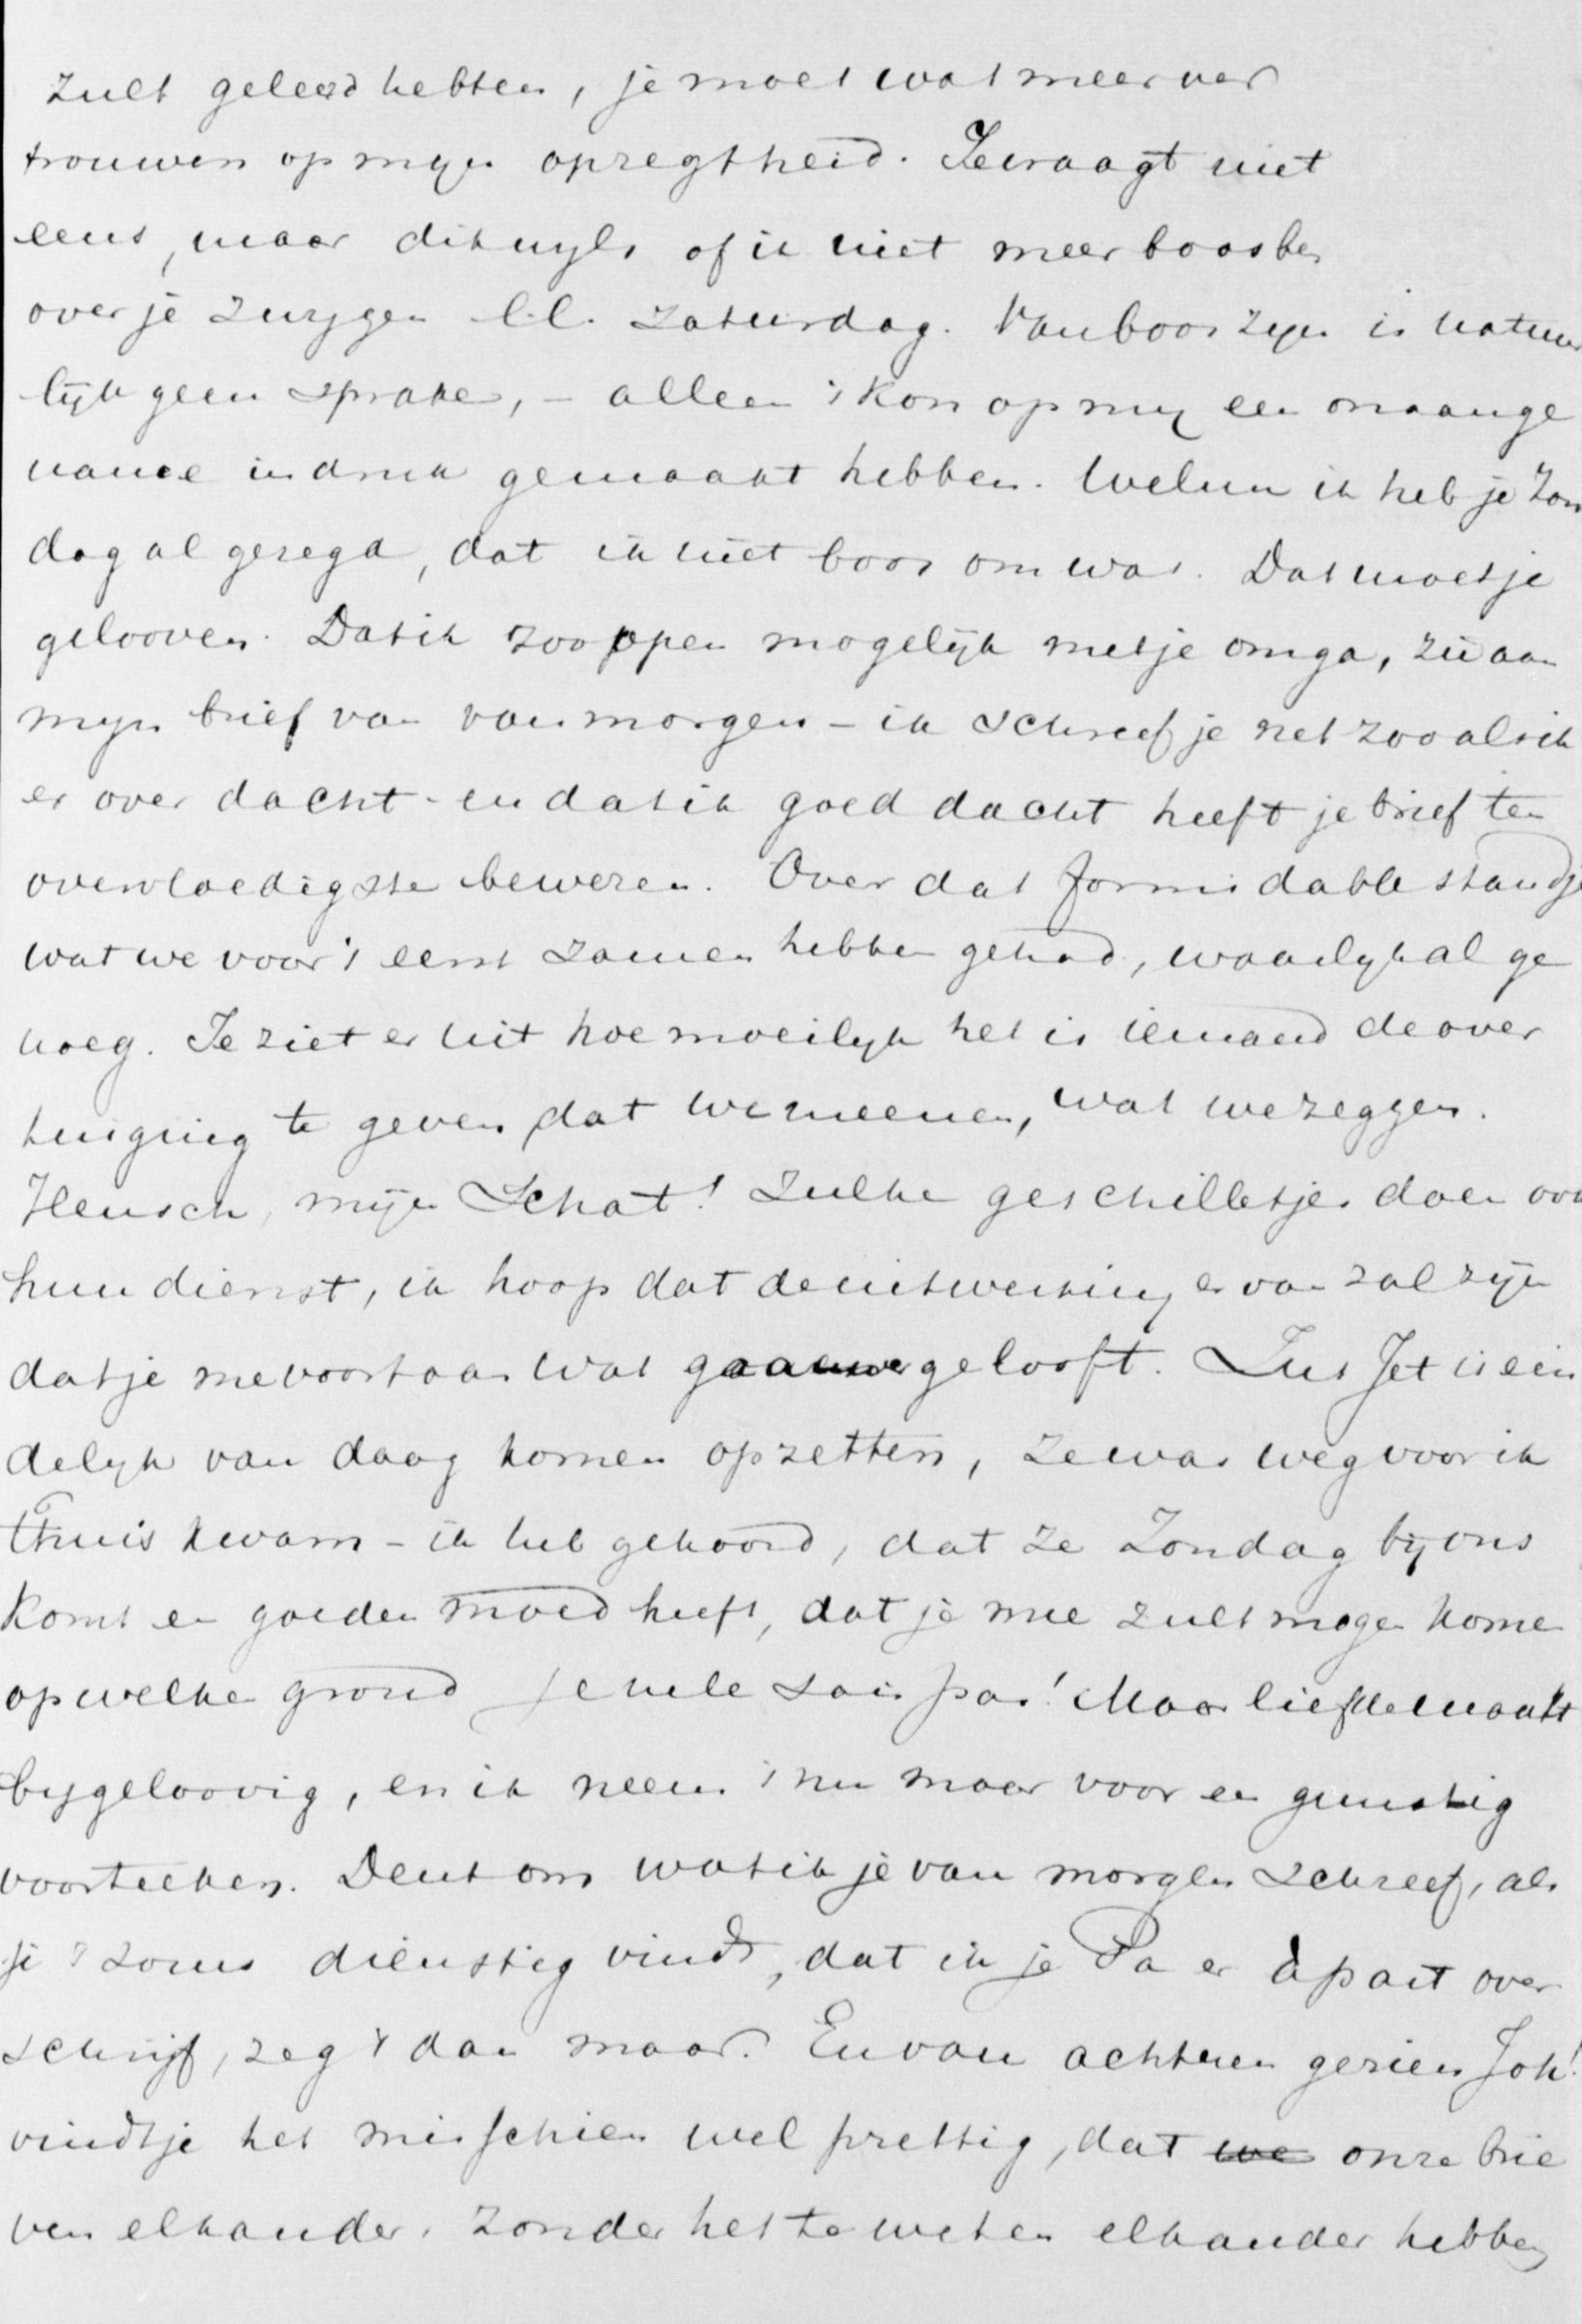 zult geleerd hebben, je moet wat meer ver
trouwen op myn opregtheid. Je vraagt niet
eens, maar dikwyls of ik niet meer boos ben
over je zwygen l.l. Zaturdag. Van boos zyn is natuur
lijk geen sprake, - alleen 't kon op my een onaange
name indruk gemaakt hebben. Welnu ik heb je Zon
dag al gezegd, dat ik niet boos om was. Dat moet je
gelooven. Dat ik zoo open mogelijk met je omga, zie aan
myn brief van van morgen - ik schreef je net zoo als ik
er over dacht - en dat ik goed dacht heeft je brief ten
overvloedigste bewezen. Over dat formidable standje
wat we voor 't eerst zamen hebben gehad, waarlyk al ge
noeg. Je ziet er uit hoe moeilyk het is iemand de over
tuiging te geven dat we meenen, wat we zeggen.
Heusch, mijn Schat! Zulke geschilletjes doen ook
hun dienst, ik hoop dat de uitwerking er van zal zijn
dat je me voortaan wat gaauwer gelooft. Zus Jet is ein
delyk van daag komen opzetten, ze was weg voor ik
thuis kwam - ik heb gehoord, dat ze Zondag bij ons
komt en goeden moed heeft, dat je mee zult mogen komen
op welken grond je ne le sais pas! Maar liefde maakt
bygeloovig, en ik neem 't nu maar voor een gunstig
voorteeken. Denk om wat ik je van morgen schreef, als
je 't soms dienstig vindt, dat ik je Pa er apart over
schrijf, zeg 't dan maar. En van achteren gezien Joh!
vindt je het misschien wel prettig, dat we onze brie
ven elkander, zonder het te weten elkander hebben